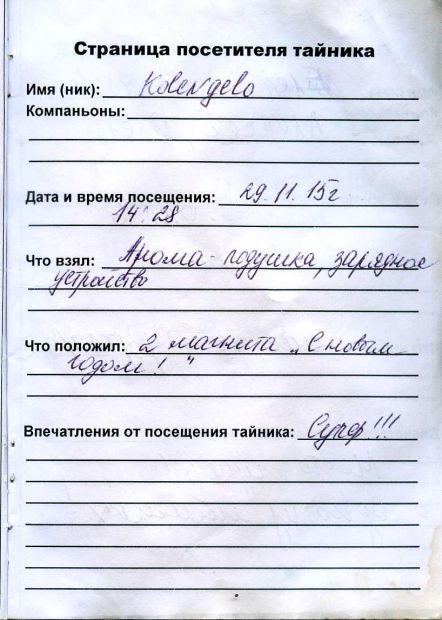 Страница посетителя тайника
Имя (ник): Ковендево
Компаньоны:
Дата и время посещения: 29.11.15г
14:28
Что взял: Арома-подушка, зарядное
устройство
Что положил: 2 магнита „С новым
годом!"
Впечатления от посещения тайника: Супер!!!